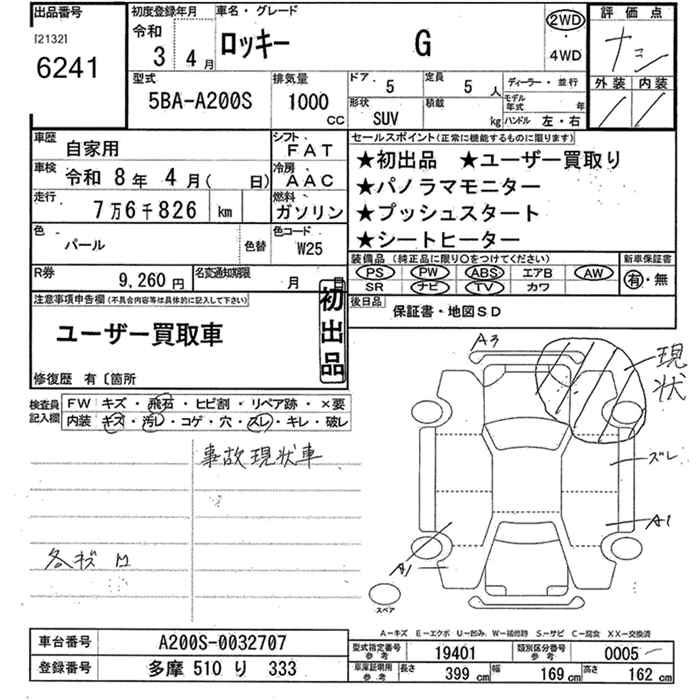 出品番号
[2132]
6241
初度登録年月
令和
3 4月
車名・グレード
ロッキー G
2WD
・
4WD
評価点
ナシ
外装 内装
型式
5BA-A200S
排気量
1000 CC
ドア 5
定員 5 人
形状 SUV
積載 kg
ディーラー・並行
モデル年式 年
ハンドル 左・右
車歴 自家用
シフト FAT
車検 令和 8年 4月( 日)
冷房 AAC
走行 7万6千826 km
燃料 ガソリン
色 パール 色替
色コード W25
R券 9,260円
名変通知期限 月 日
セールスポイント(正常に機能するものに限ります)
★初出品 ★ユーザー買取り
★パノラマモニター
★プッシュスタート
★シートヒーター
装備品 (純正品に限り〇をつけてください)
PS PW ABS エアB AW
SR ナビ TV カワ
新車保証書
有・無
後日品 保証書・地図SD
注意事項申告欄(不具合内容等は具体的に記入して下さい)
ユーザー買取車
初出品
修復歴 有〔箇所
検査員記入欄
FW キズ・飛石・ヒビ割・リペア跡・×要
内装 キズ・汚レ・コゲ・穴・ズレ・キレ・破レ
事故現状車
各キズ
A3
現状
ズレ
A1
A1
スペア
A−キズ E−エクボ U−凹み W−補修跡 S−サビ C−腐食 XX−交換済
車台番号 A200S-0032707
登録番号 多摩 510 り 333
型式指定番号 参考 19401
類別区分番号 参考 0005
車庫証明用 参考
長さ 399 cm
幅 169 cm
高さ 162 cm